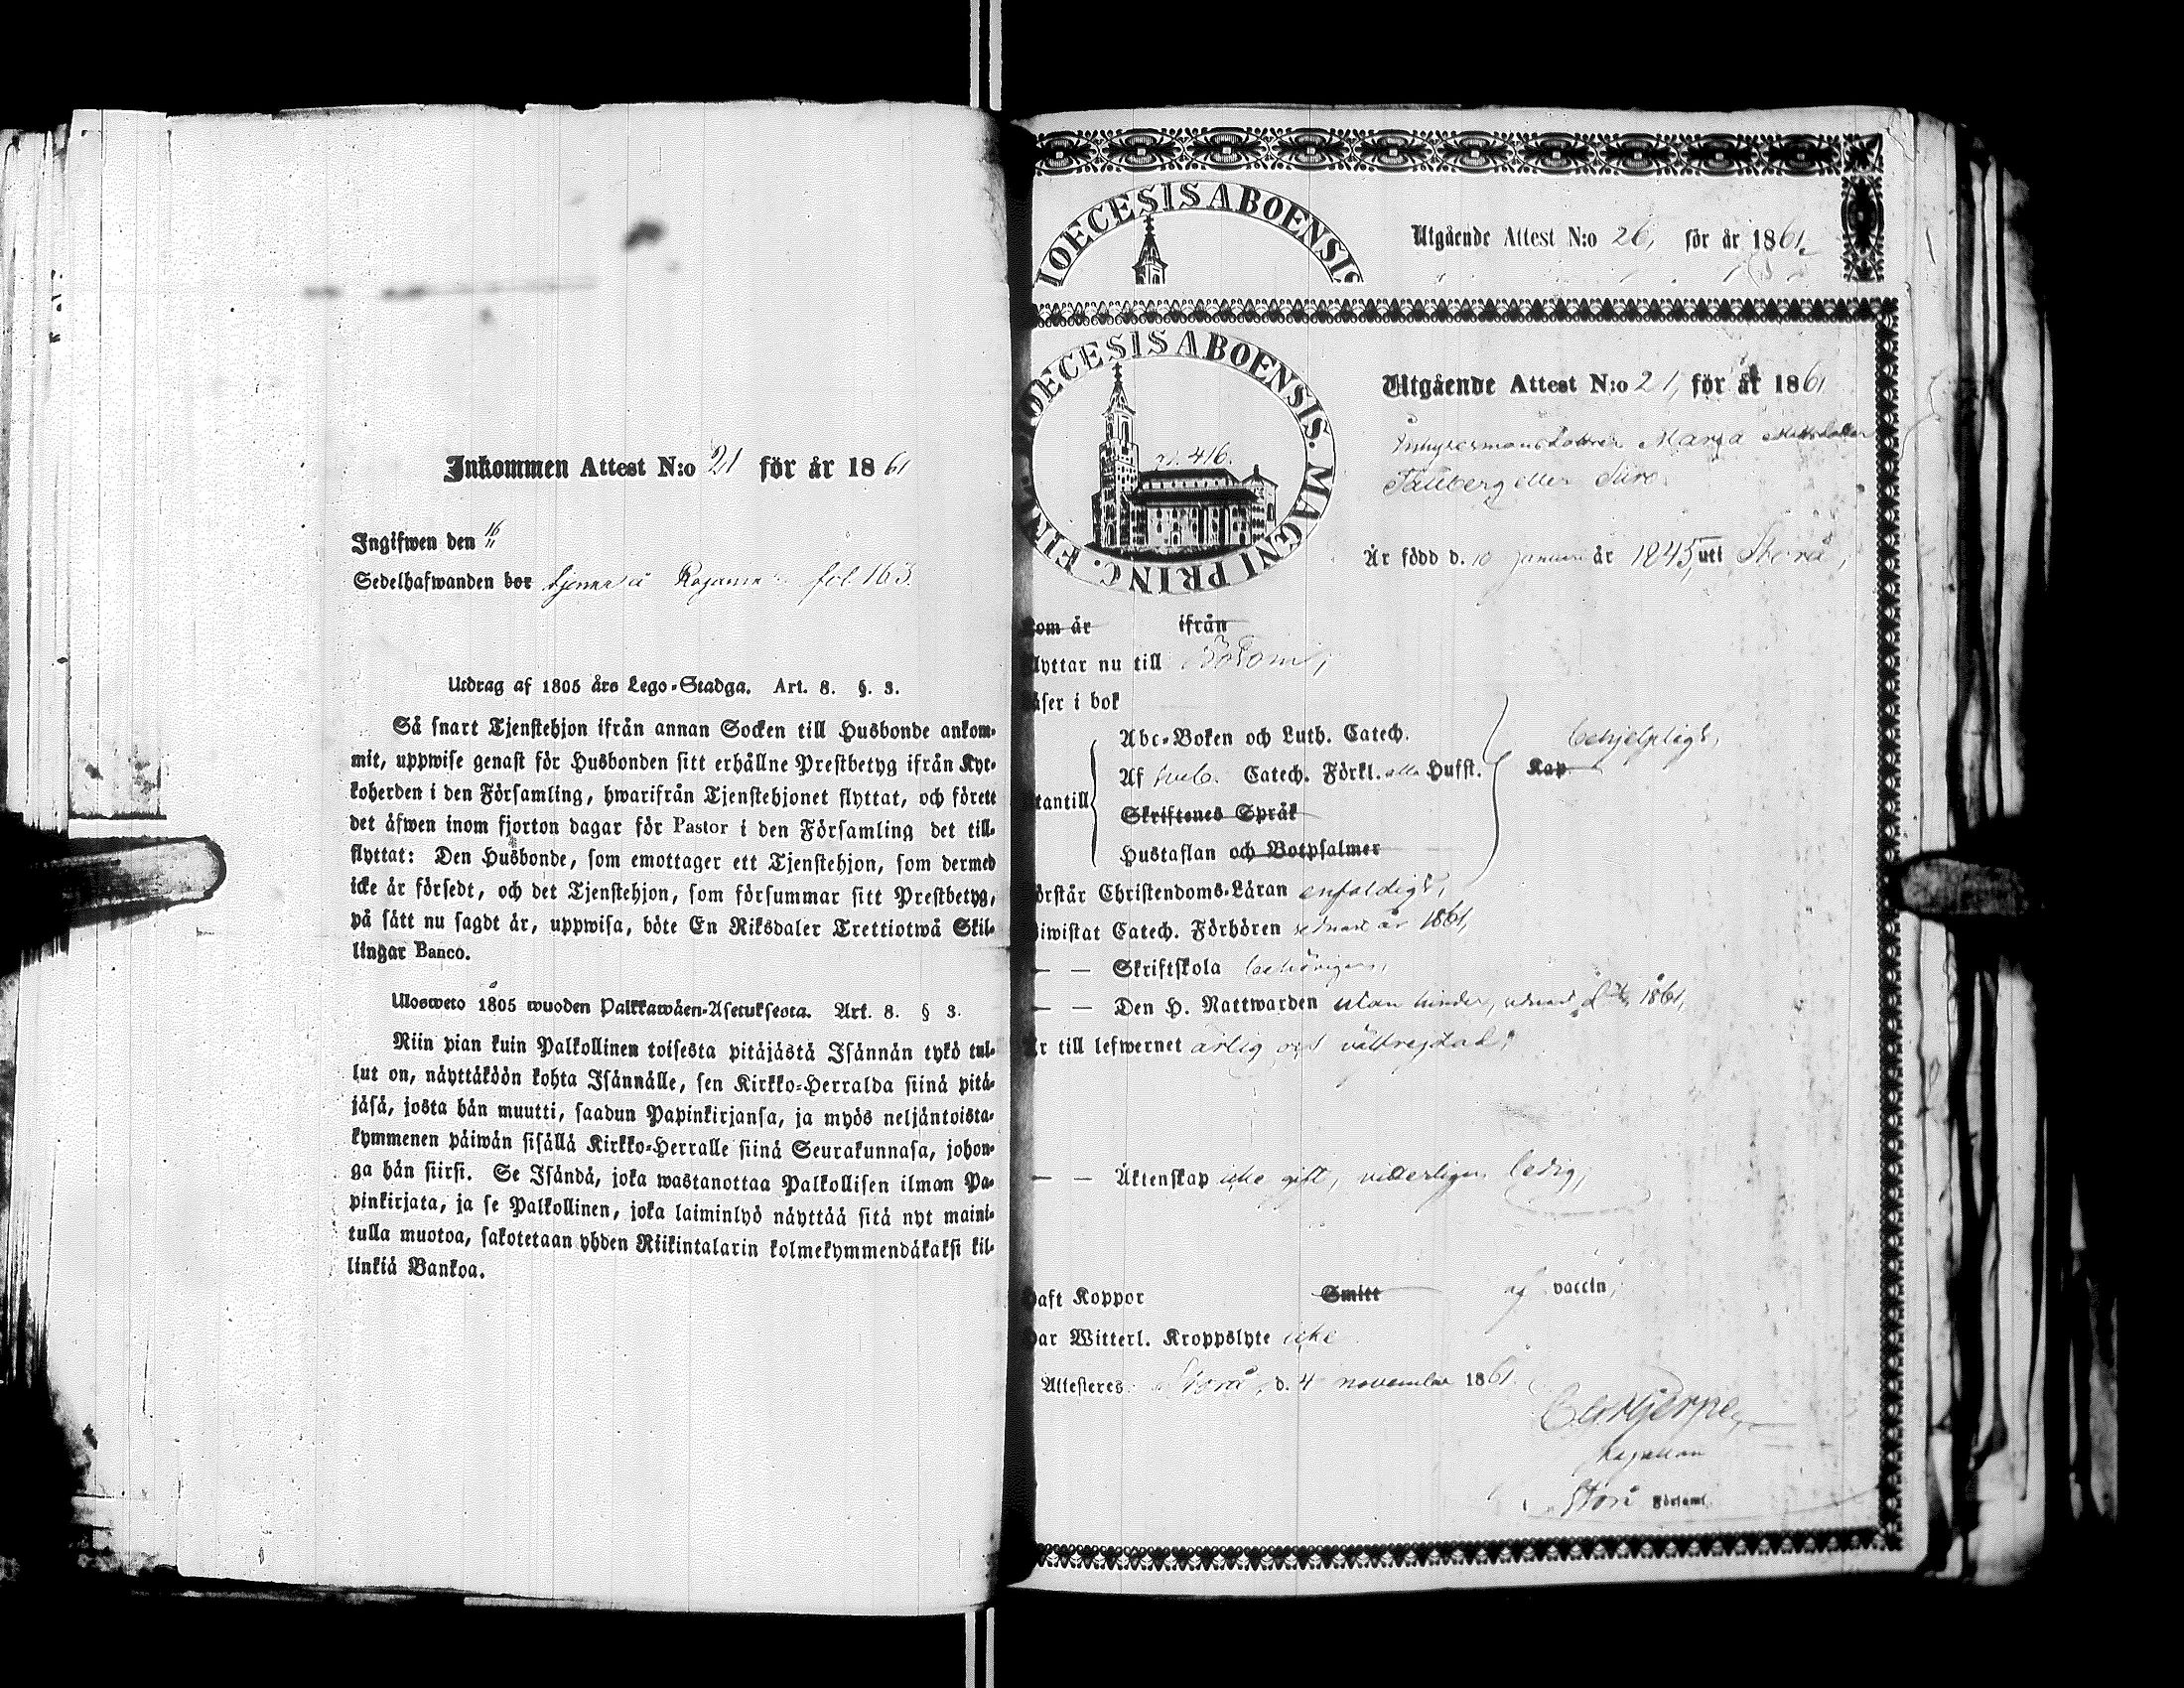 Inkommen Attest N:o 21 för år 1861
Ingifwen den 16/11
Sedelhafwanden bor tjenar å fol. 163.
Utdrag af 1805 års Lego-Stadga. Art. 8. §. 3.
Så snart Tjenstehjon ifrån annan Socken till Husbonde ankom-
mit, uppwise genast för Husbonden sitt erhållne Prestbetyg ifrån Kyr-
koherden i den Församling, hwarifrån Tjenstehjonet flyttat, och förett
det äfwen inom fjorton dagar för Pastor i den Församling det till-
flyttat: Den Husbonde, som emottager ett Tjenstehjon, som dermed
icke är försedt, och det Tjenstehjon, som försummar sitt Prestbetyg,
på sätt nu sagdt är, uppwisa, böte En Riksdaler Trettiotwå Skil-
lingar Banco.
Ulosweto 1805 wuoden Palkkawäen-Asetuksesta. Art. 8. § 3.
Niin pian kuin Palkollinen toisesta pitäjästä Isännän tykö tul-
lut on, näyttäköön kohta Isännälle, sen Kirkko-Herralda siinä pitä-
jäsä, josta hän muutti, saadun Papinkirjansa, ja myös neljäntoista-
kymmenen päiwän sisällä Kirkko-Herralle siinä Seurakunnasa, johon-
ga hän siirsi. Se Isändä, joka wastanottaa Palkollisen ilman Pa-
pinkirjata, ja se Palkollinen, joka laiminlyö näyttää sitä nyt maini-
tulla muotoa, sakotetaan yhden Riikintalarin kolmekymmendäkaksi kil-
linkiä Bankoa.
IOECESIS ABOENSIS
Utgående Attest N:o 26, för år 1861,
OECESIS ABOENSIS. MAGNI PRINC. FINL
416.
Utgående Attest N:o 21, för år 1861
Inhysesmansdottren Maria Mattsdotter
Tallberg eller Siiro
Är född d. 10 Januari år 1845, uti Storå,
kom år ifrån
flyttar nu till Bötom,
läser i bok
Abc-Boken och Luth. Catech.
behjelpligt,
Af sveb. Catech. Förkl. alla Husst. Kap.
utantill
Skriftenes Språk
Hustaflan och Botpsalmer
förstår Christendoms-Läran enfaldigt,
biwistat Catech. Förhören sednast år 1861,
— — Skriftskola behörigen,
— — Den H. Nattwarden utan hinder, 1861,
är till lefwernet ärlig och välfrejdad;
— — Äktenskap icke gift, vitterligen ledig,
haft Koppor Smitt af vaccin,
har Witterl. Kroppslyte icke
Attesteres: Storå, d. 4 november 1861.
Hjerpe
Kapellan
Storå Församl.